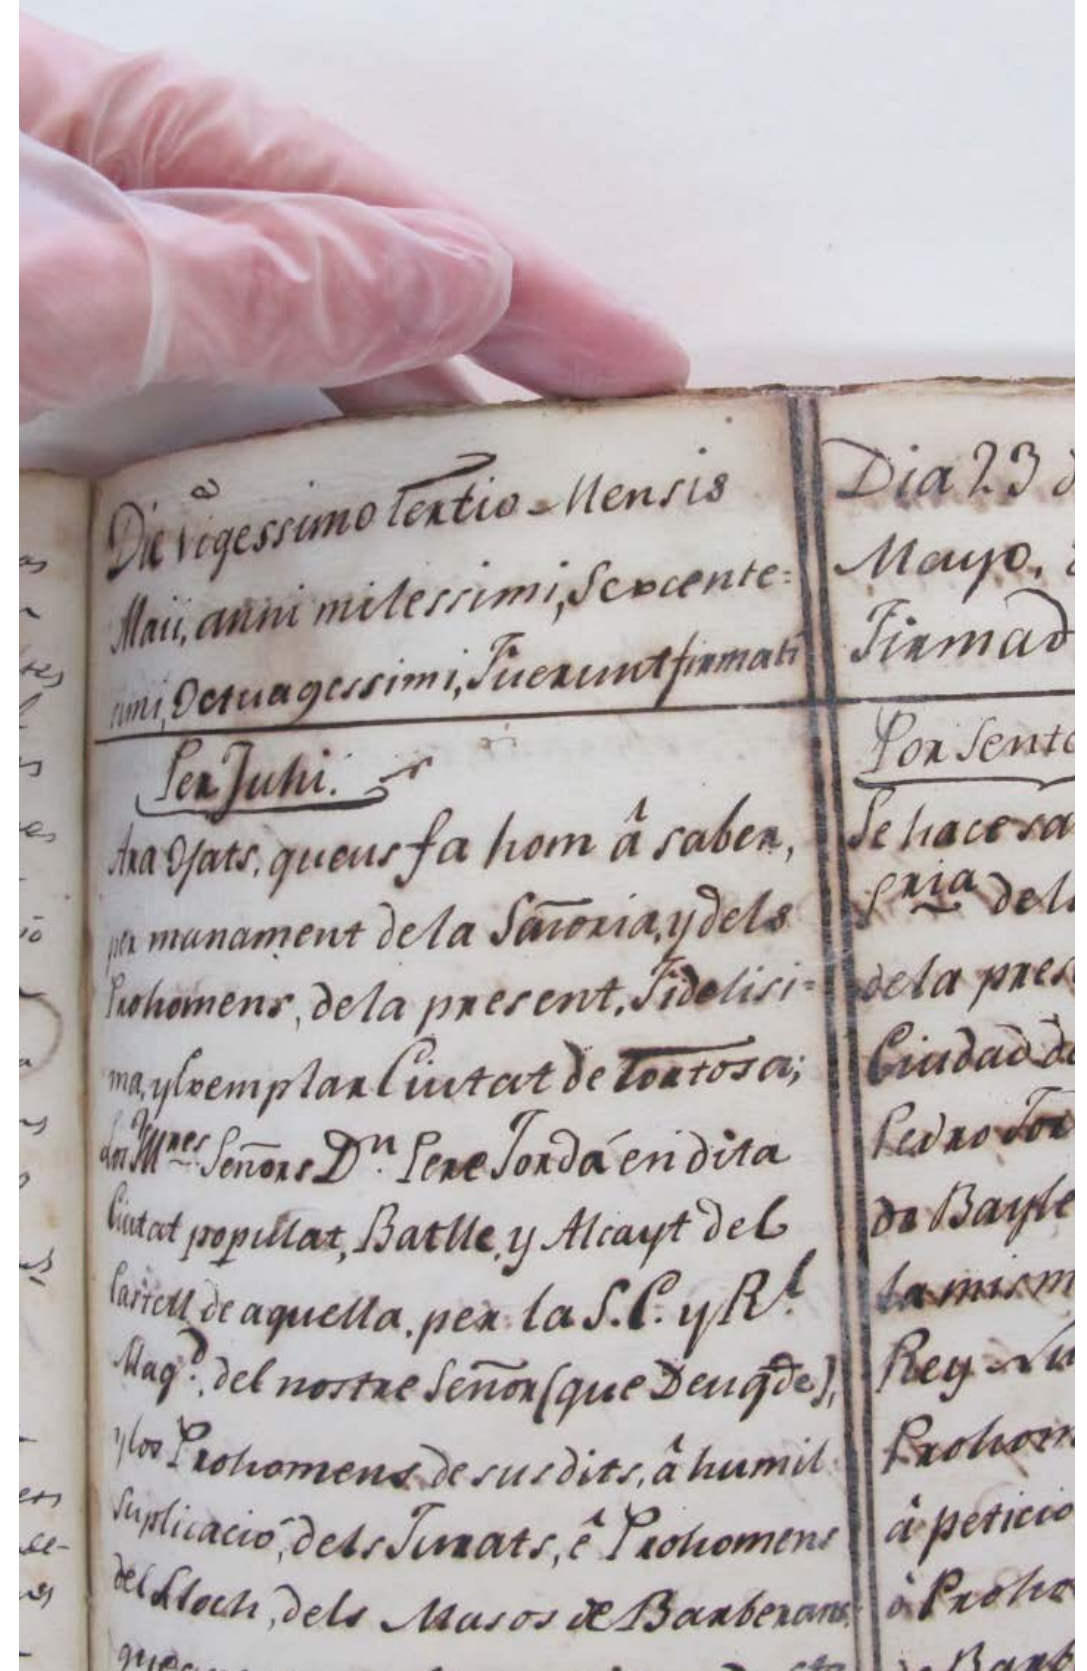 Die vigessimo Tertio Mensis
Maii, anni milessimi, Sexcente=
simi, Octuagessimi, Fuerunt firmati
Per Juhi.
Ara Ojats, queus fa hom â saber,
per manament de la Sãnoria, y dels
Prohomens, de la present, Fidelisi=
ma, y Exemplar Ciutat de Tortosa;
Los Illres Señors Dn. Pere Jordá en dita
Ciutat popillat, Batlle, y Alcayt del
Castell de aquella, per la S.C. y Rl
Magd., del nostre Señor (que Deu gde),
y los Prohomens desusdits, â humil
Suplicació, dels Jurats, ê Prohomens
del Lloch, dels Masos de Barberans
Dia 23 d
Mayo,
Firmad
Por Sente
Se hace sa
Sria de la
de la pres
Ciudad de
Pedro Jor
de Bayle
la mism
Rey Nu
Prohom
â peticio
ô Proho
Barb